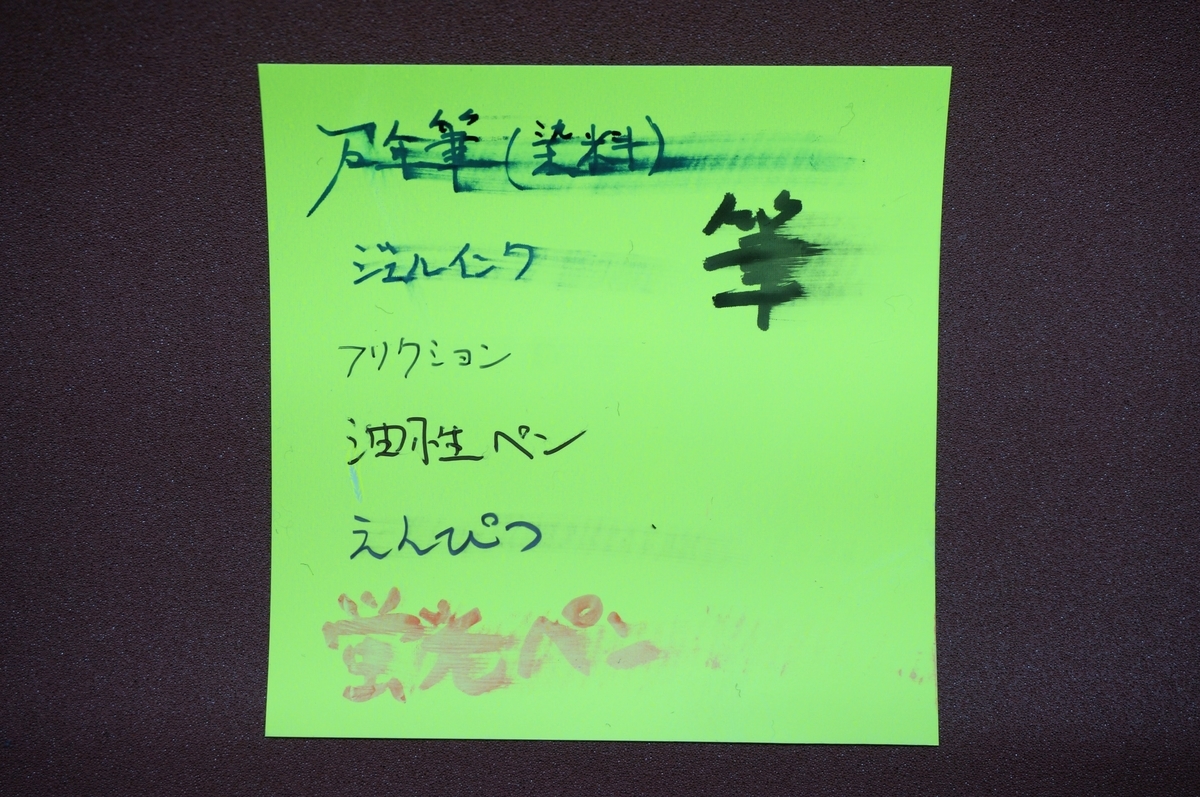 万年筆(染料)
筆
ジェルインク
フリクション
油性ペン
えんぴつ
蛍光ペン